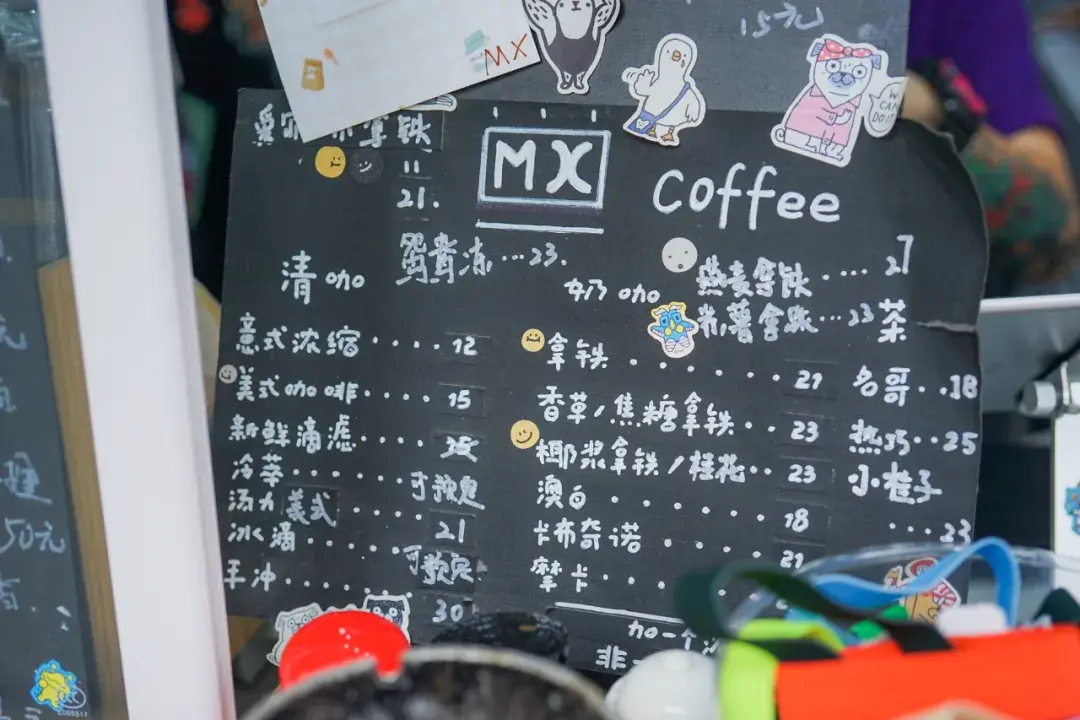 15元
MX
WE CAN DO IT
拿铁
21.
MX Coffee
蛋黄冻...23.
清咖
意式浓缩....12
美式咖啡....15
新鲜滴滤....25
冷萃......可预定
汤力美式......21
冰滴......可预定
手冲......30
奶咖
燕麦拿铁....27
紫薯拿铁...23
拿铁......21
香草/焦糖拿铁..23
椰浆拿铁/桂花..23
澳白......18
卡布奇诺......21
摩卡...
加一个
非
茶
名哥..18
热巧..25
小桂子
...23
50元